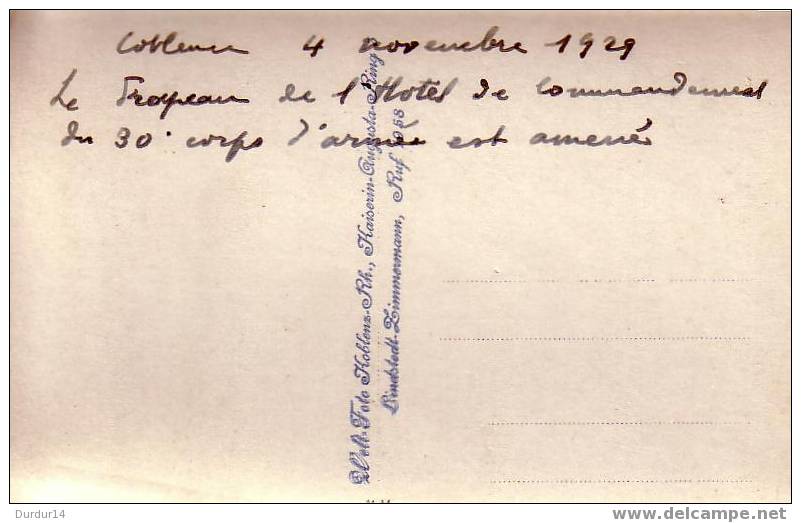 Coblence 4 novembre 1929
Le Drapeau de l'Hotel de Commandement
du 30e corps d'armée est amené
Welt-Foto Koblenz-Rh., Kaiserin-Augusta-Ring
Lindstedt-Zimmermann, Ruf 68
Durdur14
delcampe.net